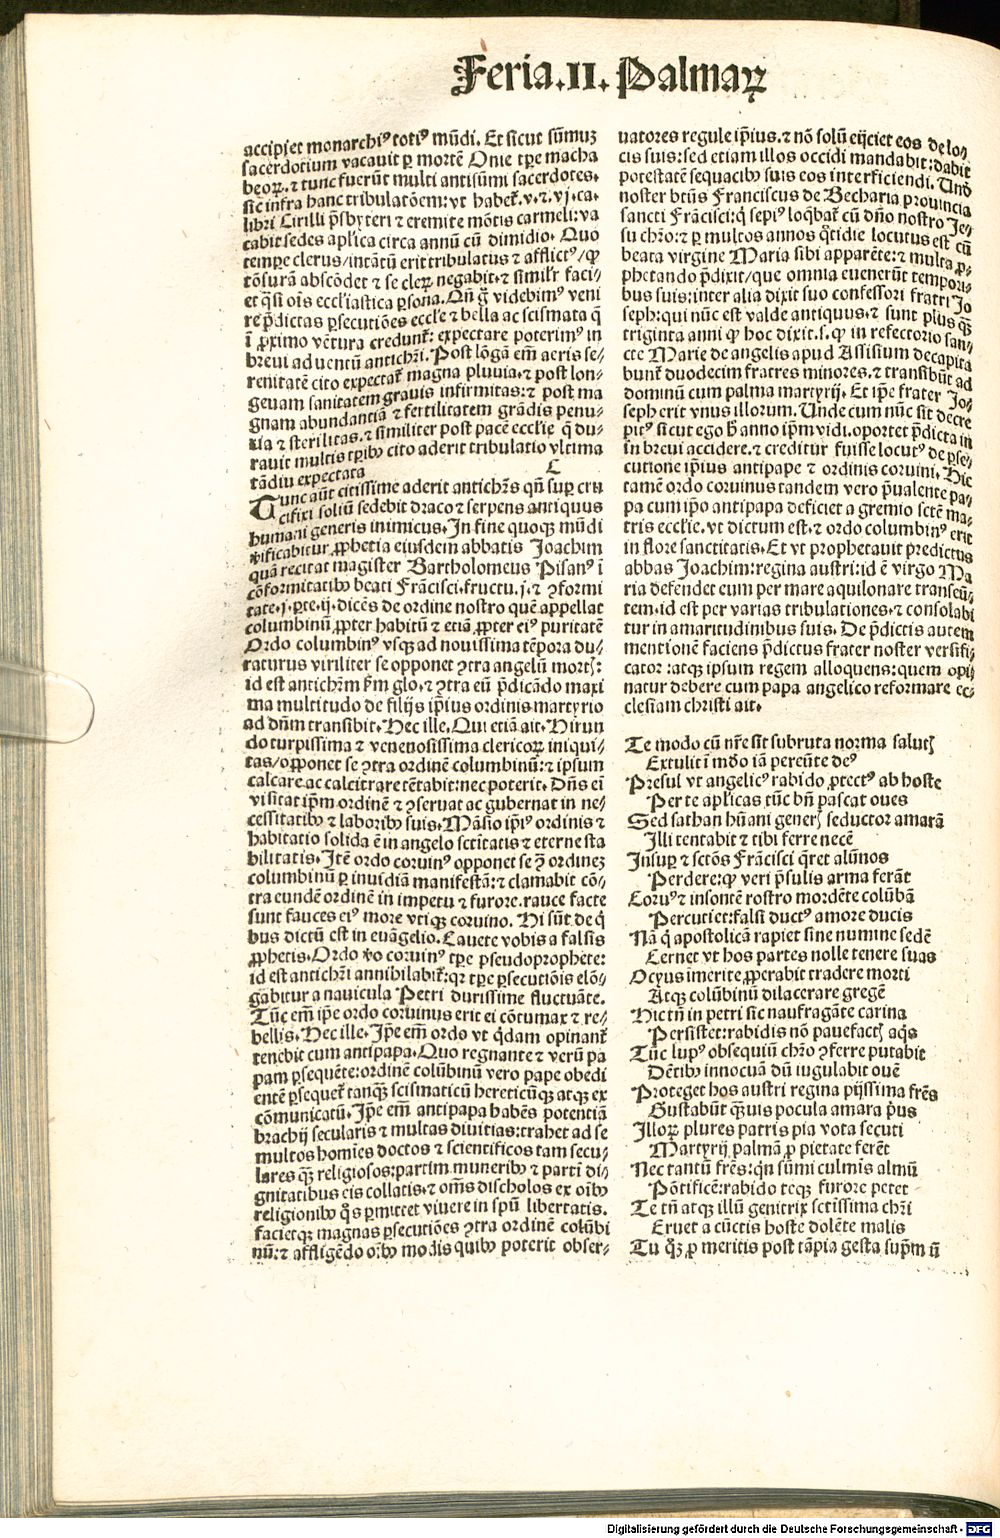 Feria.II. Palmaꝝ
accipiet monarchiꝰ totiꝰ mũdi. Et sicut sũmuꝫ
sacerdotium vacauit ꝑ mortẽ Onie tꝑe macha
beoꝝ. ⁊ tunc fuerũt multi antisũmi sacerdotes.
sic̃ infra hanc tribulatõem: vt habet̃. v. ⁊. vj. ca.
libri Cirilli p̃sbyteri ⁊ eremite mõtis carmeli: va
cabit sedes apl̃ica circa annũ cũ dimidio. Quo
tempore clerus/intãtũ erit tribulatus ⁊ afflictꝰ/ꝙ
tõsurã abscõdet ⁊ se cleꝝ negabit. ⁊ simil̃r faci⸗
et q̃si oĩs eccl̃iastica ꝑsona. Qñ g̃ videbimꝰ veni
re p̃dictas ꝑsecutiões eccl̃e ⁊ bella ac scismata q̃
ĩ ꝓximo vẽtura credunt̃: expectare poterimꝰ in
breui aduentũ antichr̃i. Post lõgã em̃ aeris se⸗
renitatẽ cito expectat̃ magna pluuia. ⁊ post lon⸗
geuam sanitatem grauis infirmitas: ⁊ post ma
gnam abundantiã ⁊ fertilitatem grãdis penu⸗
ria ⁊ sterilitas. ⁊ similiter post pacẽ eccl̃ie q̃ du⸗
rauit multis tꝑibꝰ cito aderit tribulatio vltima
tãdiu expectata
C
Tunc aũt citissime aderit antichr̃s qñ suꝑ cru
cifixi soliũ sedebit draco ⁊ serpens antiquus
humani generis inimicus. In fine quoqꝫ mũdi
v̓ificabitur ꝓphetia eiusdem abbatis Joachim
quã recitat magister Bartholomeus Pisanꝰ ĩ
cõformitatibꝰ beati Frãcisci. fructu. j. ⁊ ꝯformi
tate. j. ꝑte. ij. dicẽs de ordine nostro quẽ appellat
columbinũ ꝓpter habitũ ⁊ etiã ꝓpter eiꝰ puritatẽ
Ordo columbinꝰ vsqꝫ ad nouissima tẽpora du⸗
raturus viriliter se opponet ꝯtra angelũ mortꝭ:
id est antichr̃m k̃m glo. ⁊ ꝯtra eũ p̃dicãdo maxi
ma multitudo de filijs ip̃ius ordinis martyrio
ad dñm transibit. Hec ille. Qui etiã ait. Hirun
do turpissima ⁊ venenosissima clericoꝝ iniqui⸗
tas/oꝓponet se ꝯtra ordinẽ columbinũ: ⁊ ipsum
calcare ac calcitrare tẽtabit: nec poterit. Dñs eĩ
visitat ip̃m ordinẽ ⁊ ꝯseruat ac gubernat in ne⸗
cessitatibꝰ ⁊ laboribꝰ suis. Mãsio ip̃iꝰ ordinis ⁊
habitatio solida ẽ in angelo sctitatis ⁊ eterne sta
bilitatis. Itẽ ordo coruinꝰ opponet se ꝯ̃ ordineꝫ
columbinũ ꝑ inuidiã manifestã: ⁊ clamabit cõ⸗
tra eundẽ ordinẽ in impetu ⁊ furore. rauce facte
sunt fauces eiꝰ more vtiqꝫ coruino. Hi sũt de q̃
bus dictũ est in euãgelio. Cauete vobis a falsis
ꝓphetis. Ordo v̓o coruinꝰ tꝑe pseudoprophete:
id est antichr̃i annihilabit̃: qꝛ tꝑe ꝑsecutiõis elõ⸗
gabitur a nauicula Petri durissime fluctuãte.
Tũc em̃ ip̃e ordo coruinus erit ei cõtumax ⁊ re⸗
bellis. Hec ille. Ip̃e em̃ ordo vt q̃dam opinant̃
tenebit cum antipapa. Quo regnante ⁊ verũ pa
pam ꝑsequẽte: ordinẽ colũbinũ vero pape obedi
entẽ ꝑsequet̃ tanqꝫ̃ scismaticũ hereticũqꝫ atqꝫ ex
cõmunicatũ. Ip̃e em̃ antipapa habẽs potentiã
brachij secularis ⁊ multas diuitias: trahet ad se
multos homĩes doctos ⁊ scientificos tam secu⸗
lares qꝫ̃ religiosos: partim muneribꝰ ⁊ partĩ di⸗
gnitatibus eis collatis. ⁊ om̃s discholos ex oĩbꝰ
religionibꝰ q̊s ꝑmittet viuere in spũ libertatis.
facietqꝫ magnas ꝑsecutiões ꝯtra ordinẽ colũbi
nũ: ⁊ affligẽdo oĩbꝰ modis quibꝰ poterit obser⸗
uatores regule ip̃ius. ⁊ nõ solũ eijciet eos de lo⸗
cis suis: sed etiam illos occidi mandabit: dabit
potestatẽ sequacibꝰ suis eos interficiendi. Unde
noster btũs Franciscus de Becharia prouincia
sancti Frãcisci: q̃ sepiꝰ loq̃bat̃ cũ dño nostro Je⸗
su chr̃o: ⁊ ꝑ multos annos q̃tidie locutus est cũ
beata virgine Maria sibi apparẽte: ⁊ multa ꝓ⸗
phetando p̃dixit/que omnia euenerũt tempori⸗
bus suis: inter alia dixit suo confessori fratri Jo
seph: qui nũc est valde antiquus. ⁊ sunt plus qꝫ̃
triginta anni ꝙ hoc dixit. s. ꝙ in refectorio san⸗
cte Marie de angelis apud Assisium decapita
bunt̃ duodecim fratres minores. ⁊ transibũt ad
dominũ cum palma martyrij. Et ip̃e frater Jo⸗
seph erit vnus illorum. Unde cum nũc sit decre
pitꝰ sicut ego h̃ anno ip̃m vidi. oportet p̃dicta in
in breui accidere. ⁊ creditur fuisse locutꝰ de ꝑse⸗
cutione ip̃ius antipape ⁊ ordinis coruini. Hic
tamẽ ordo coruinus tandem vero p̃ualente pa⸗
pa cum ip̃o antipapa deficiet a gremio sctẽ ma⸗
tris eccl̃ie. vt dictum est. ⁊ ordo columbinꝰ erit
in flore sanctitatis. Et vt prophetauit predictus
abbas Joachim: regina austri: id ẽ virgo Ma
ria defendet eum per mare aquilonare transeũ⸗
tem. id est per varias tribulationes. ⁊ consolabi
tur in amaritudinibus suis. De p̃dictis autem
mentionẽ faciens p̃dictus frater noster versifi⸗
cator: atqꝫ ipsum regem alloquens: quem opi⸗
natur debere cum papa angelico reformare ec⸗
clesiam christi ait.
Te modo cũ nr̃e sit subruta norma salutꝭ
Extulit ĩ mõo iã pereũte deꝰ
Presul vt angelicꝰ rabido ꝓtectꝰ ab hoste
Per te apl̃icas tũc bñ pascat oues
Sed sathan hũani generꝭ seductor amarã
Illi tentabit ⁊ tibi ferre necẽ
Insuꝑ ⁊ sctõs Frãcisci q̃ret alũnos
Perdere: ꝙ veri p̃sulis arma ferãt
Coruꝰ ⁊ insontẽ rostro mordẽte colũbã
Percutiet: falsi ductꝰ amore ducis
Nã q̃ apostolicã rapiet sine numine sedẽ
Cernet vt hos partes nolle tenere suas
Ocyus imerite ꝓperabit tradere morti
Atqꝫ colũbinũ dilacerare gregẽ
Hic tñ in petri sic naufragãte carina
Persistet: rabidis nõ pauefactꝭ aq̃s
Tũc lupꝰ obsequiũ chr̃o ꝯferre putabit
Dẽtibꝰ innocuã dũ iugulabit ouẽ
Proteget hos austri regina pijssima fr̃es
Gustabũt qꝫ̃uis pocula amara p̃us
Illoꝝ plures patris pia vota secuti
Martyrij palmã ꝓ pietate ferẽt
Nec tantũ fr̃es: q̃n sũmi culmĩs almũ
Põtificẽ: rabido teqꝫ furore petet
Te tñ atqꝫ illũ genitrix sctissima chr̃i
Eruet a cũctis hoste dolẽte malis
Tu q̊ꝫ ꝓ meritis post tãpia gesta sup̃m ũ
Digitalisierung gefördert durch die Deutsche Forschungsgemeinschaft - DFG